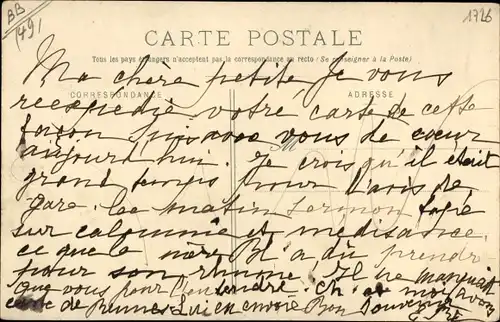 BB
149
1726
CARTE POSTALE
Tous les pays étrangers n'acceptent pas la correspondance au recto (Se renseigner à la Poste)
CORRESPONDANCE
ADRESSE
Ma chère petite, Je vous
reexpedie votre carte de cette
façon suis avec vous de cœur
aujourd'hui. Je crois qu'il était
grand temps pour l'avis de
gare. Ce matin sermon tapé
sur calomnie et médisance.
ce que le père B. a dû prendre
pour son rhume. Il ne manquait
que vous pour l'entendre. Ch. et moi
carte de Rennes qui en envoie Bon Souvenir